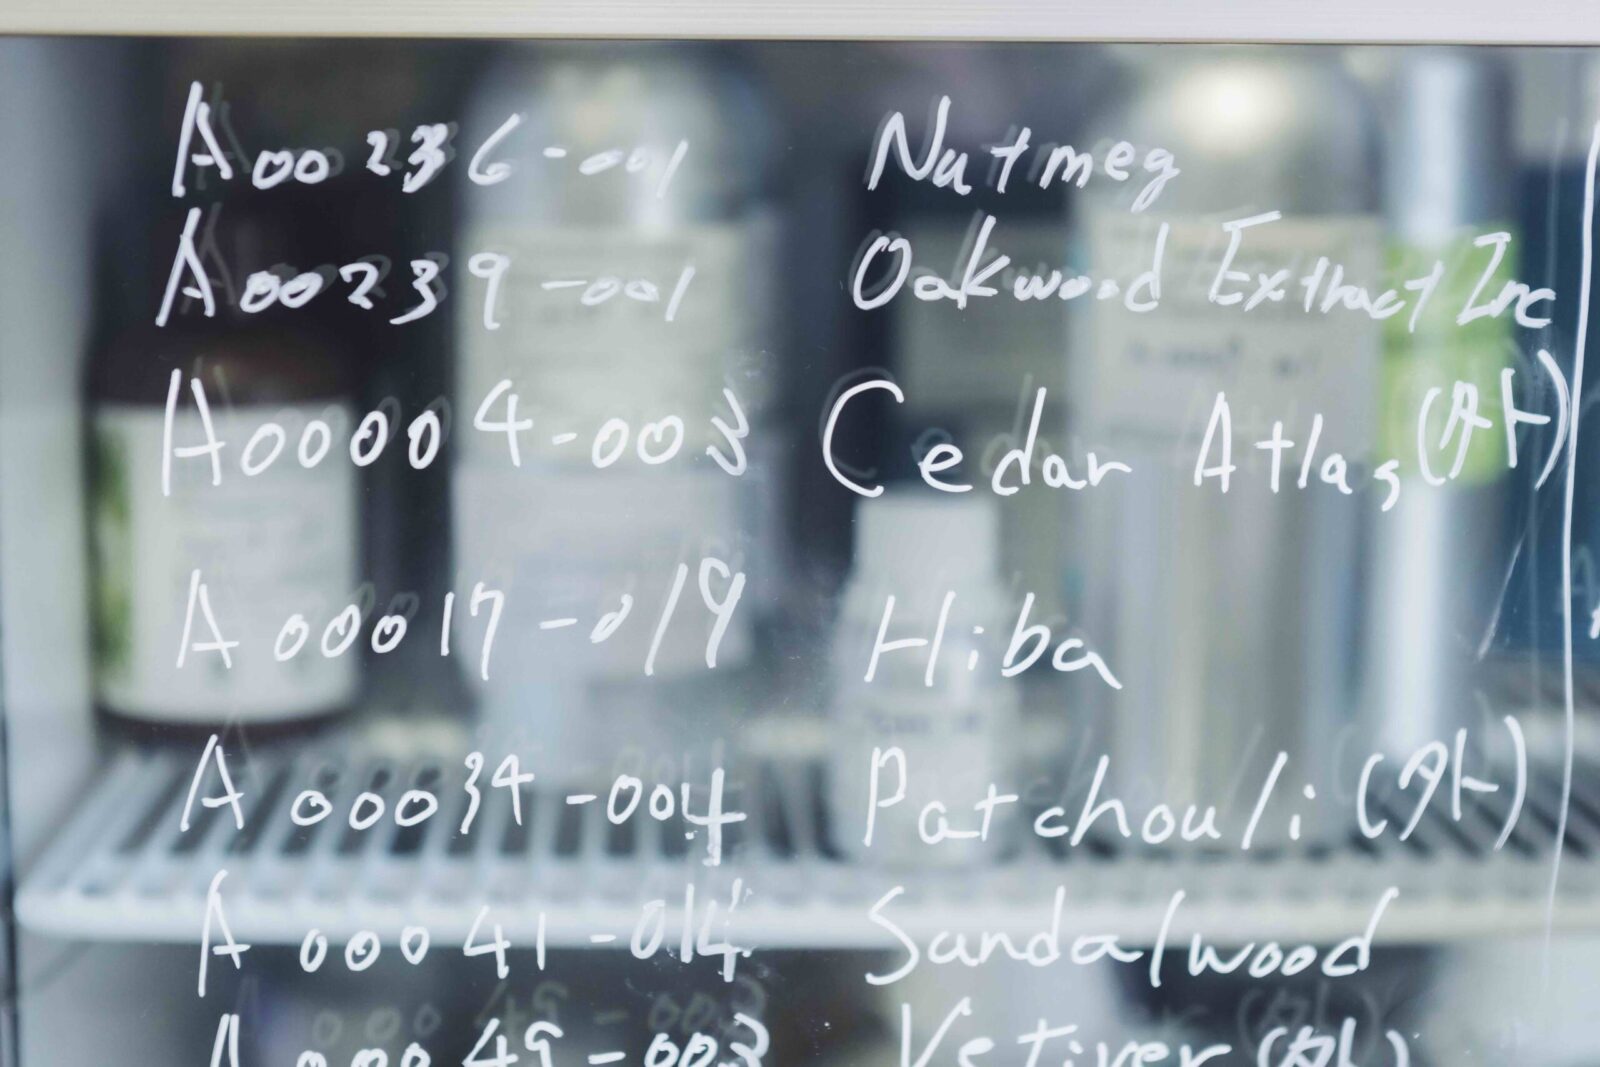 A00236-001 Nutmeg
A00239-001 Oakwood Extract Inc
A00004-003 Cedar Atlas (外)
A00017-019 Hiba
A00034-004 Patchouli (外)
A00041-014 Sandalwood
A00049-003 Vetiver (外)